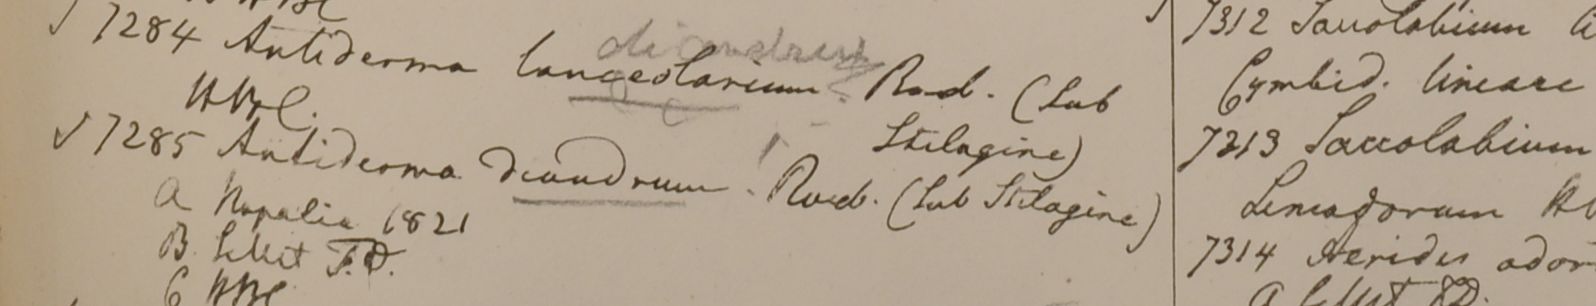 HBC
√ 7284 Antiderma lanceolarium. Roxb. (sub
Stilagine)
HBC.
√ 7285 Antiderma diandrum. Roxb. (sub Stilagine)
a Napalia 1821
B Sillet F.D.
C HBC
7312 Saccolabium
Cymbid. lineare
7313 Saccolabium
Limodorum
7314 Aerides
a Sillet FD.